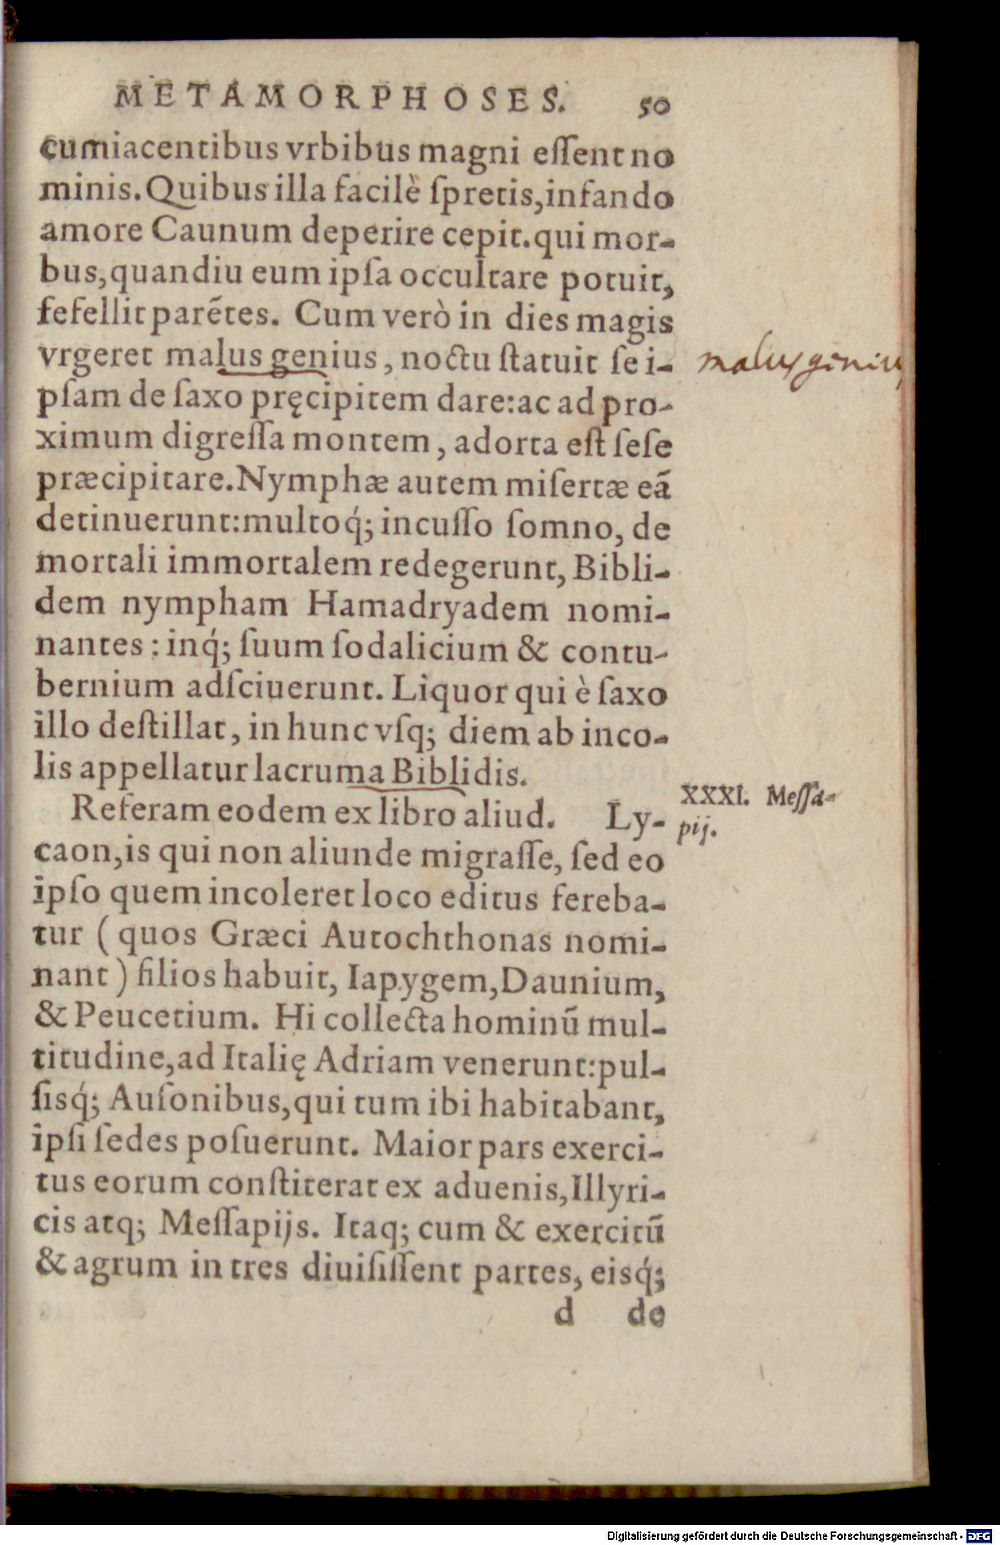 METAMORPHOSES. 50
cumiacentibus vrbibus magni eſſent no
minis. Quibus illa facilè ſpretis, infando
amore Caunum deperire cepit. qui mor-
bus, quandiu eum ipſa occultare potuit,
fefellit parẽtes. Cum verò in dies magis
vrgeret malus genius, noctu ſtatuit ſe i-
malus genius
pſam de ſaxo pręcipitem dare: ac ad pro-
ximum digreſſa montem, adorta eſt ſeſe
præcipitare. Nymphæ autem miſertæ eã
detinuerunt: multoq́; incuſſo ſomno, de
mortali immortalem redegerunt, Bibli-
dem nympham Hamadryadem nomi-
nantes: inq́; ſuum ſodalicium & contu-
bernium adſciuerunt. Liquor qui è ſaxo
illo deſtillat, in hunc vſq; diem ab inco-
lis appellatur lacruma Biblidis.
XXXI. Meſſa-
pij.
Referam eodem ex libro aliud. Ly-
caon, is qui non aliunde migraſſe, ſed eo
ipſo quem incoleret loco editus fereba-
tur (quos Græci Autochthonas nomi-
nant) filios habuit, Iapygem, Daunium,
& Peucetium. Hi collecta hominũ mul-
titudine, ad Italię Adriam venerunt: pul-
ſisq́; Auſonibus, qui tum ibi habitabant,
ipſi ſedes poſuerunt. Maior pars exerci-
tus eorum conſtiterat ex aduenis, Illyri-
cis atq; Meſſapijs. Itaq; cum & exercitũ
& agrum in tres diuiſiſſent partes, eisq́;
d de
Digitalisierung gefördert durch die Deutsche Forschungsgemeinschaft - DFG